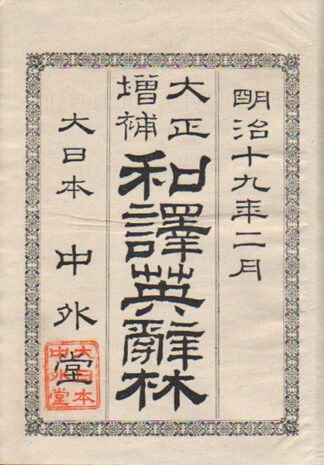 明治十九年二月
大正
增補
和譯英辭林
大日本 中外堂
大日本
中外堂